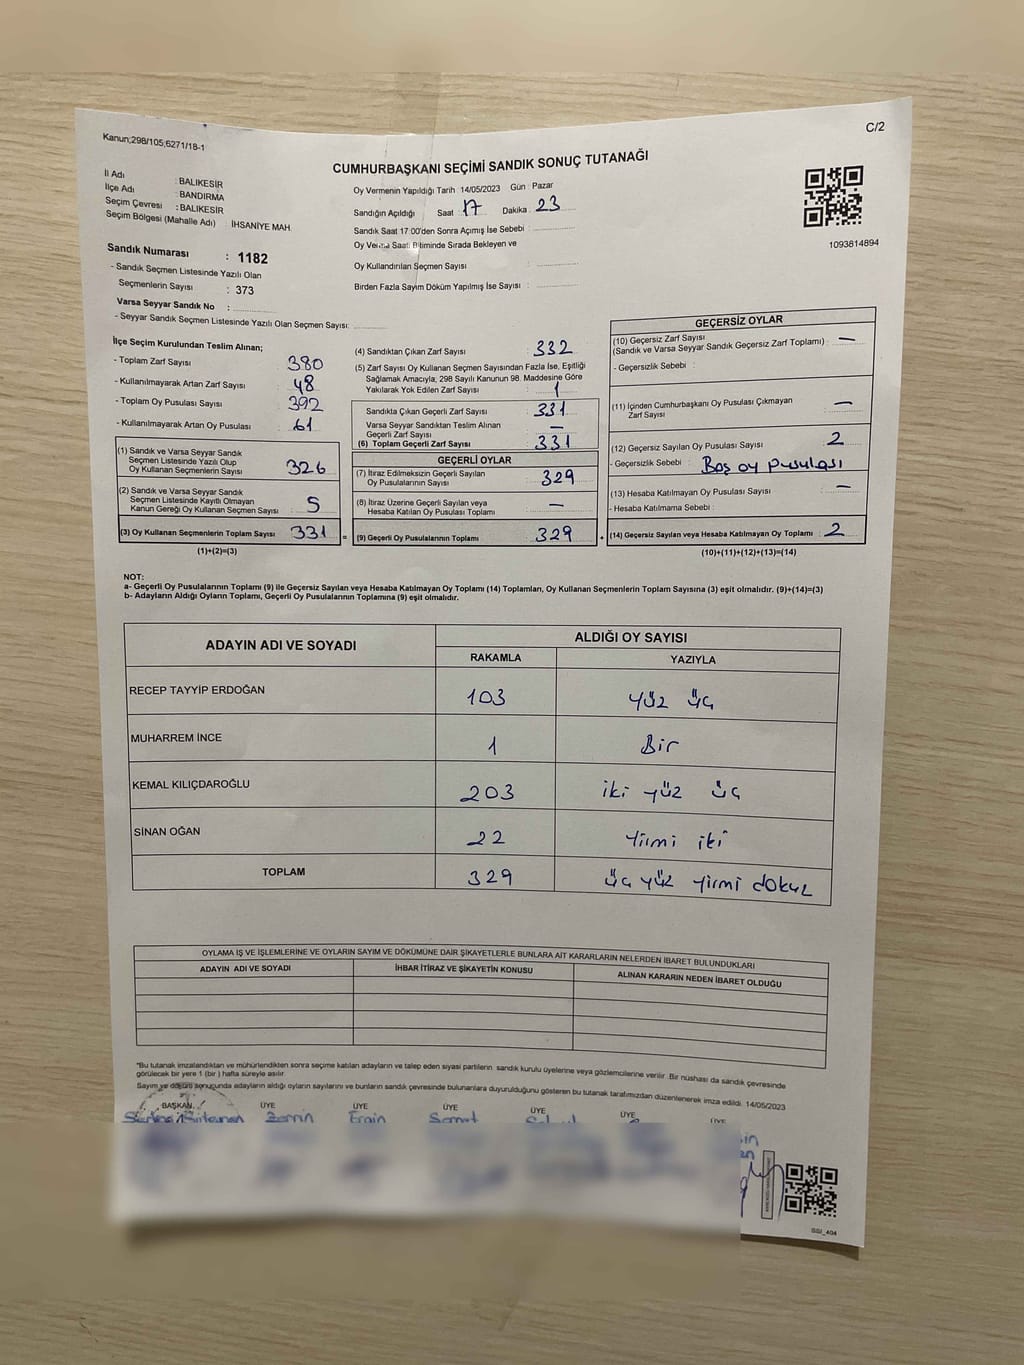 Kanun;298/105;6271/18-1
C/2
CUMHURBAŞKANI SEÇİMİ SANDIK SONUÇ TUTANAĞI
İl Adı : BALIKESİR
İlçe Adı : BANDIRMA
Seçim Çevresi : BALIKESİR
Seçim Bölgesi (Mahalle Adı) : İHSANİYE MAH.
Oy Vermenin Yapıldığı Tarih 14/05/2023 Gün : Pazar
Sandığın Açıldığı Saat : 17 Dakika : 23
Sandık Saat 17:00'den Sonra Açımış İse Sebebi :
Oy Verme Saati Bitiminde Sırada Bekleyen ve
Oy Kullandırılan Seçmen Sayısı :
Birden Fazla Sayım Döküm Yapılmış İse Sayısı :
1093814894
Sandık Numarası : 1182
- Sandık Seçmen Listesinde Yazılı Olan
Seçmenlerin Sayısı : 373
Varsa Seyyar Sandık No :
- Seyyar Sandık Seçmen Listesinde Yazılı Olan Seçmen Sayısı:
İlçe Seçim Kurulundan Teslim Alınan;
- Toplam Zarf Sayısı : 380
- Kullanılmayarak Artan Zarf Sayısı : 48
- Toplam Oy Pusulası Sayısı : 392
- Kullanılmayarak Artan Oy Pusulası : 61
(1) Sandık ve Varsa Seyyar Sandık
Seçmen Listesinde Yazılı Olup
Oy Kullanan Seçmenlerin Sayısı : 326
(2) Sandık ve Varsa Seyyar Sandık
Seçmen Listesinde Kayıtlı Olmayan
Kanun Gereği Oy Kullanan Seçmen Sayısı : 5
(3) Oy Kullanan Seçmenlerin Toplam Sayısı : 331
(1)+(2)=(3)
=
(4) Sandıktan Çıkan Zarf Sayısı : 332
(5) Zarf Sayısı Oy Kullanan Seçmen Sayısından Fazla İse, Eşitliği
Sağlamak Amacıyla; 298 Sayılı Kanunun 98. Maddesine Göre
Yakılarak Yok Edilen Zarf Sayısı : 1
Sandıkta Çıkan Geçerli Zarf Sayısı : 331
Varsa Seyyar Sandıktan Teslim Alınan
Geçerli Zarf Sayısı : —
(6) Toplam Geçerli Zarf Sayısı : 331
GEÇERLİ OYLAR
(7) İtiraz Edilmeksizin Geçerli Sayılan
Oy Pusulalarının Sayısı : 329
(8) İtiraz Üzerine Geçerli Sayılan veya
Hesaba Katılan Oy Pusulası Toplamı : —
(9) Geçerli Oy Pusulalarının Toplamı : 329
+
GEÇERSİZ OYLAR
(10) Geçersiz Zarf Sayısı
(Sandık ve Varsa Seyyar Sandık Geçersiz Zarf Toplamı) : —
- Geçersizlik Sebebi :
(11) İçinden Cumhurbaşkanı Oy Pusulası Çıkmayan
Zarf Sayısı : —
(12) Geçersiz Sayılan Oy Pusulası Sayısı : 2
- Geçersizlik Sebebi : Boş oy pusulası
(13) Hesaba Katılmayan Oy Pusulası Sayısı : —
- Hesaba Katılmama Sebebi :
(14) Geçersiz Sayılan veya Hesaba Katılmayan Oy Toplamı : 2
(10)+(11)+(12)+(13)=(14)
NOT:
a- Geçerli Oy Pusulalarının Toplamı (9) ile Geçersiz Sayılan veya Hesaba Katılmayan Oy Toplamı (14) Toplamları, Oy Kullanan Seçmenlerin Toplam Sayısına (3) eşit olmalıdır. (9)+(14)=(3)
b- Adayların Aldığı Oyların Toplamı, Geçerli Oy Pusulalarının Toplamına (9) eşit olmalıdır.
ADAYIN ADI VE SOYADI
ALDIĞI OY SAYISI
RAKAMLA YAZIYLA
RECEP TAYYİP ERDOĞAN 103 yüz üç
MUHARREM İNCE 1 Bir
KEMAL KILIÇDAROĞLU 203 iki yüz üç
SİNAN OĞAN 22 yirmi iki
TOPLAM 329 üç yüz yirmi dokuz
OYLAMA İŞ VE İŞLEMLERİNE VE OYLARIN SAYIM VE DÖKÜMÜNE DAİR ŞİKAYETLERLE BUNLARA AİT KARARLARIN NELERDEN İBARET BULUNDUKLARI
ADAYIN ADI VE SOYADI İHBAR İTİRAZ VE ŞİKAYETİN KONUSU ALINAN KARARIN NEDEN İBARET OLDUĞU
*Bu tutanak imzalandıktan ve mühürlendikten sonra seçime katılan adayların ve talep eden siyasi partilerin sandık kurulu üyelerine veya gözlemcilerine verilir. Bir nüshası da sandık çevresinde
görülecek bir yere 1 (bir ) hafta süreyle asılır.
Sayım ve döküm sonucunda adayların aldığı oyların sayılarını ve bunların sandık çevresinde bulunanlara duyurulduğunu gösteren bu tutanak tarafımızdan düzenlenerek imza edildi. 14/05/2023
BAŞKAN ÜYE ÜYE ÜYE ÜYE ÜYE ÜYE
SSI_404